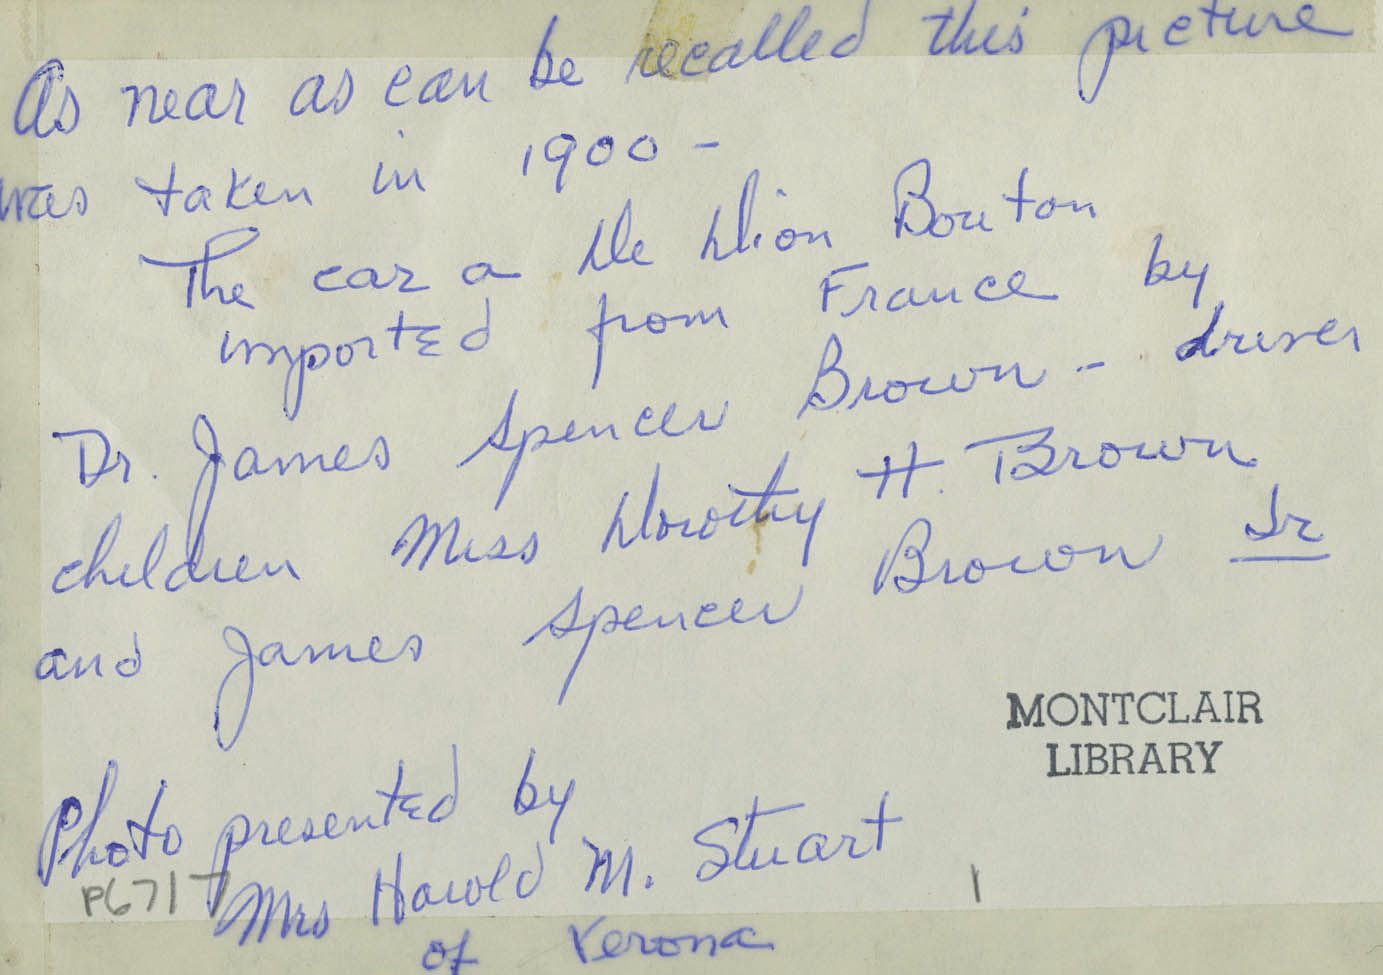 As near as can be recalled this picture
was taken in 1900 -
The car a De Dion Bouton
imported from France by
Dr. James Spencer Brown - driver
children Miss Dorothy H. Brown
and James Spencer Brown Jr
MONTCLAIR
LIBRARY
Photo presented by
Mrs Harold M. Stuart
of Verona
P671T
1